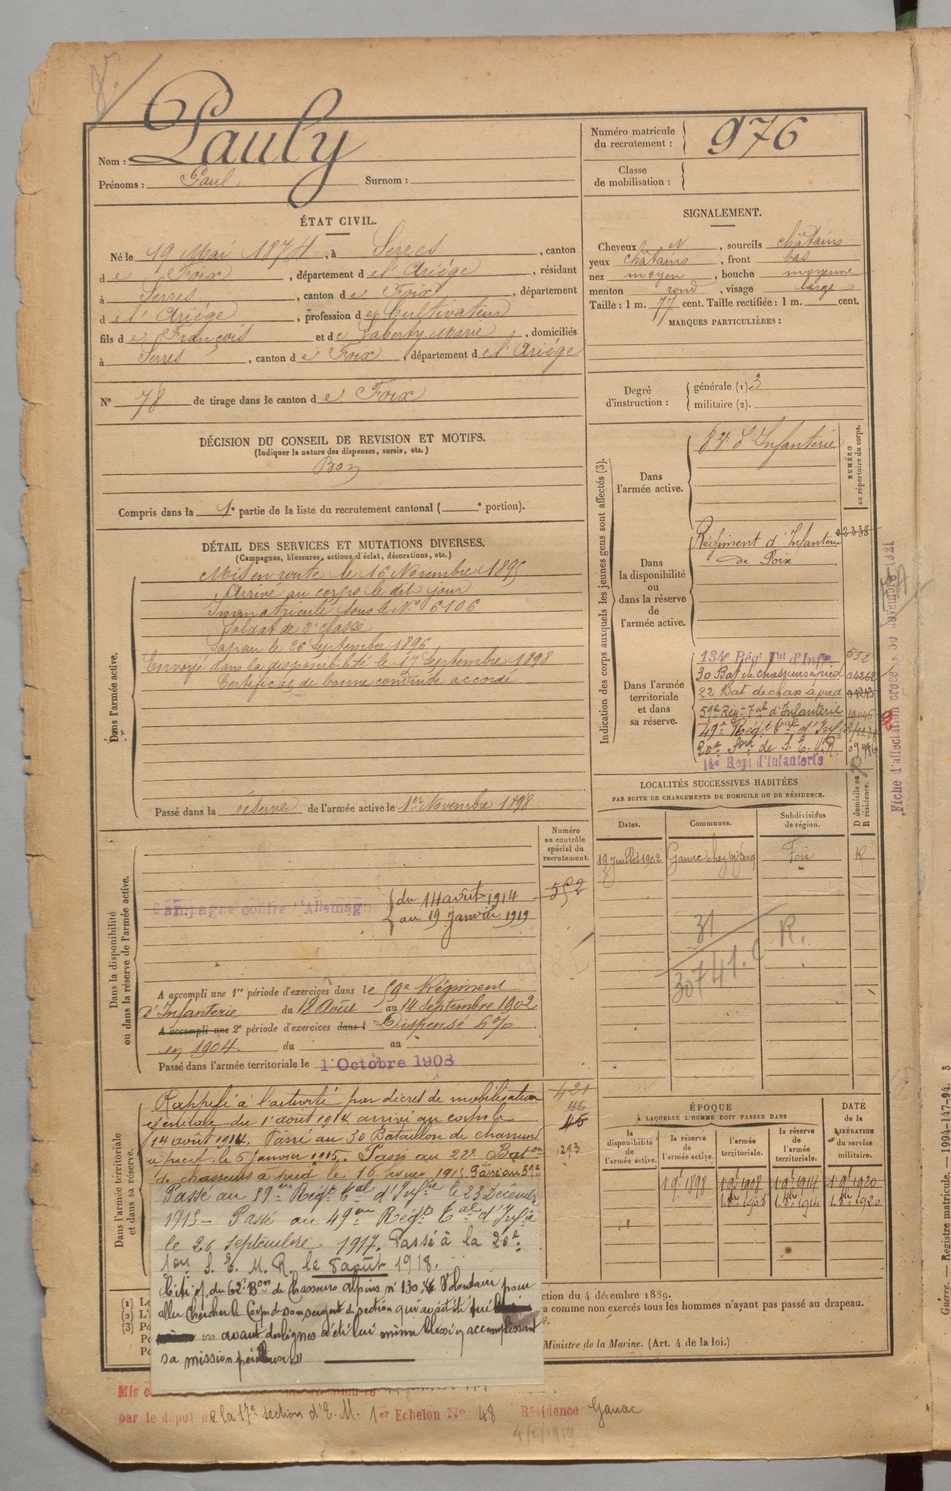 Nom : Pauly
Prénoms : Paul Surnom :
Numéro matricule du recrutement : 976
Classe de mobilisation :
ÉTAT CIVIL.
Né le 19 Mai 1874, à Serres, canton
de Foix, département de l'Ariège, résidant
à Serres, canton de Foix, département
de l'Ariège, profession de Cultivateur
fils de François et de Laberty Marie, domiciliés
à Serres, canton de Foix, département de l'Ariège
N° 78 de tirage dans le canton de Foix
SIGNALEMENT.
Cheveux et, sourcils châtains
yeux châtains, front bas
nez moyen, bouche moyenne
menton rond, visage large
Taille : 1 m. 77 cent. Taille rectifiée : 1 m. cent.
MARQUES PARTICULIÈRES :
Degré d'instruction : générale (1). 3
militaire (2).
DÉCISION DU CONSEIL DE REVISION ET MOTIFS.
(Indiquer la nature des dispenses, sursis, etc.)
Bon
Compris dans la 1e partie de la liste du recrutement cantonal ( e portion).
DÉTAIL DES SERVICES ET MUTATIONS DIVERSES.
(Campagnes, blessures, actions d'éclat, décorations, etc.)
Dans l'armée active.
Mis en route le 16 Novembre 1895
Arrivé au corps le dit jour
Immatriculé sous le N° 6106
Soldat de 2e classe
Sapeur le 26 Septembre 1896
Envoyé dans la disponibilité le 17 Septembre 1898
Certificat de bonne conduite accordé
Passé dans la réserve de l'armée active le 1er Novembre 1898
Indication des corps auxquels les jeunes gens sont affectés (3).
NUMÉRO au répertoire du corps.
Dans l'armée active.
d'Infanterie
Dans la disponibilité ou dans la réserve de l'armée active.
Régiment d'Infanterie
de Foix
02338
Dans l'armée territoriale et dans sa réserve.
134e Régt Tal d'Infie
30 Bat de chasseurs à pied
22 Bat de chas à pied
59e Régt Tal d'Infanterie
49e Régt Tal d'Infie
20e Son de S. E. M. R.
14e Régt d'Infanterie
Fiche d'affectation
LOCALITÉS SUCCESSIVES HABITÉES
PAR SUITE DE CHANGEMENTS DE DOMICILE OU DE RÉSIDENCE.
Dates. Communes. Subdivisions de région. D domicile ou R résidence.
19 Juillet 1902 Ganac Foix R
31 R.
Dans la disponibilité ou dans la réserve de l'armée active.
Numéro au contrôle spécial du recrutement.
552
Campagne contre l'Allemagne
du 14 août 1914
au 19 janvier 1919
A accompli une 1re période d'exercices dans le 59e Régiment
d'Infanterie du 18 Août au 14 Septembre 1902
A accompli une 2e période d'exercices dans l Dispensé
en 1904 du au
Passé dans l'armée territoriale le 1 Octobre 1908
Dans l'armée territoriale et dans sa réserve.
Rappelé à l'activité par décret de mobilisation
générale du 1er août 1914 arrivé au corps le
14 août 1914. Passé au 30 Bataillon de chasseurs
à pied le 6 janvier 1915. Passé au 22e Baton
de chasseurs à pied le 16 1915 Passé au 59e
1293
Passé au 59me Régt Tal d'Infie le 23 Décembre
1915 – Passé au 49me Régt Tal d'Infie
le 26 septembre 1917. Passé à la 20e
Son S. E. M. R. le 5 août 1918.
Cité of. du 62e Bon de Chasseurs alpins n° 130. Volontaire pour
aller chercher le Corps de son sergent de section qui avait été
en avant des lignes a été lui même blessé en accomplissant
sa mission périlleuse
ÉPOQUE
À LAQUELLE L'HOMME DOIT PASSER DANS
la disponibilité de l'armée active. la réserve de l'armée active. l'armée territoriale. la réserve de l'armée territoriale.
DATE de la LIBÉRATION du service militaire.
1 9bre 1898 1 9bre 1908 1 9bre 1914 1 9bre 1920
1 8bre 1908 1 8bre 1914 1 8bre 1920
(1) (2) (3)
ction du 4 décembre 1889.
a comme non exercés tous les hommes n'ayant pas passé au drapeau.
Ministre de la Marine. (Art. 4 de la loi.)
Mis e
par le dépôt de la 17e section d'E. M. 1er Echelon No 48 Résidence Ganac
Guerre. — Registre matricule. — 1994-147-94.